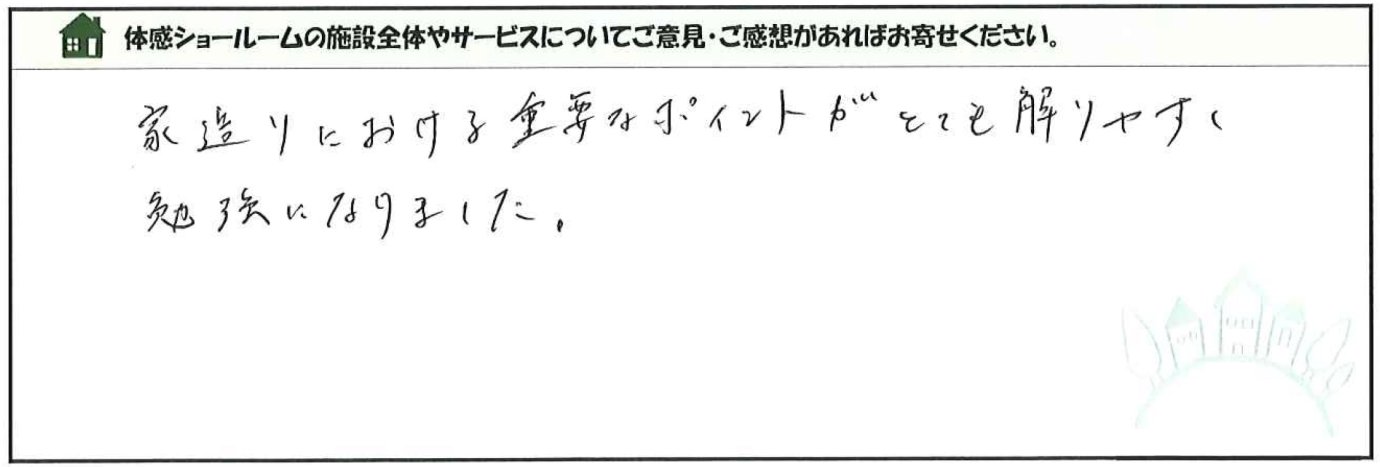 体感ショールームの施設全体やサービスについてご意見・ご感想があればお寄せください。
家造りにおける重要なポイントがとても解りやすく
勉強になりました。